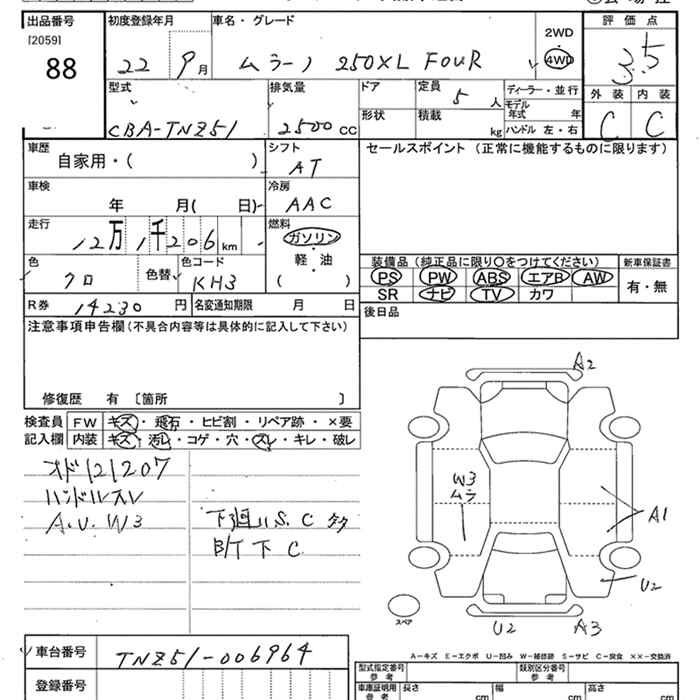 出品番号
[2059]
88
初度登録年月
22 9月
車名・グレード
ムラーノ 250XL FOUR
2WD
4WD
評価点
3.5
型式
CBA-TNZ51
排気量
2500 CC
ドア
定員
5 人
ディーラー・並行
モデル年式 年
形状
積載
kg
ハンドル 左・右
外装 内装
C C
車歴
自家用・( )
シフト
AT
セールスポイント (正常に機能するものに限ります)
車検
年 月( 日)
冷房
AAC
走行
12万1千206km
燃料
ガソリン
軽・油
( )
色
クロ
色替
色コード
KH3
装備品(純正品に限り○をつけてください)
PS PW ABS エアB AW
SR ナビ TV カワ
新車保証書
有・無
R券
14230円
名変通知期限 月 日
後日品
注意事項申告欄(不具合内容等は具体的に記入して下さい)
修復歴 有 〔箇所 〕
検査員記入欄
FW キズ・飛石・ヒビ割・リペア跡・×要
内装 キズ・汚れ・コゲ・穴・スレ・キレ・破レ
オド121207
ハンドルスレ
A.U.W3
下廻りS.C
B/T下C
A2
W3
ムラ
A1
U2
スペア
U2 A3
A-キズ E-エクボ U-凹み W-補修跡 S-サビ C-腐食 ××-交換済
車台番号
TNZ51-006964
登録番号
型式指定番号 参考
類別区分番号 参考
車庫証明用 参考
長さ cm
幅 cm
高さ cm